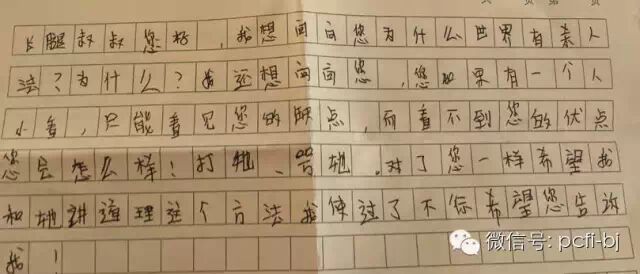 长腿叔叔您好,我想问问您为什么世界有杀人
法?为什么?我还想问问您,您如果有一个人
小看,只能看见您的缺点,而看不到您的优点
您会怎么样!打他、骂他.对了您一样希望我
和他讲道理这个方法我使过了不你希望您告诉
我!
微信号: pcfl-bj